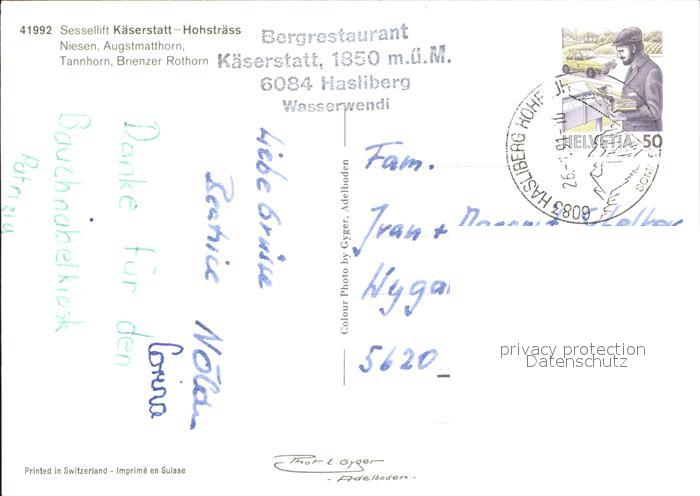 41992 Sessellift Käserstatt–Hohsträss
Niesen, Augstmatthorn,
Tannhorn, Brienzer Rothorn
Bergrestaurant
Käserstatt, 1850 m.ü.M.
6084 Hasliberg
Wasserwendi
HELVETIA 50
6083 HASLIBERG HOHFLUH
26.-
Liebe Grüsse
Beatrice
Corina
Danke für den
Bauchnabelkiosk
Patrizia
Colour Photo by Gyger, Adelboden
Fam.
Ivan +
5620
privacy protection
Datenschutz
Printed in Switzerland - Imprimé en Suisse
Phot. E. Gyger
- Adelboden -